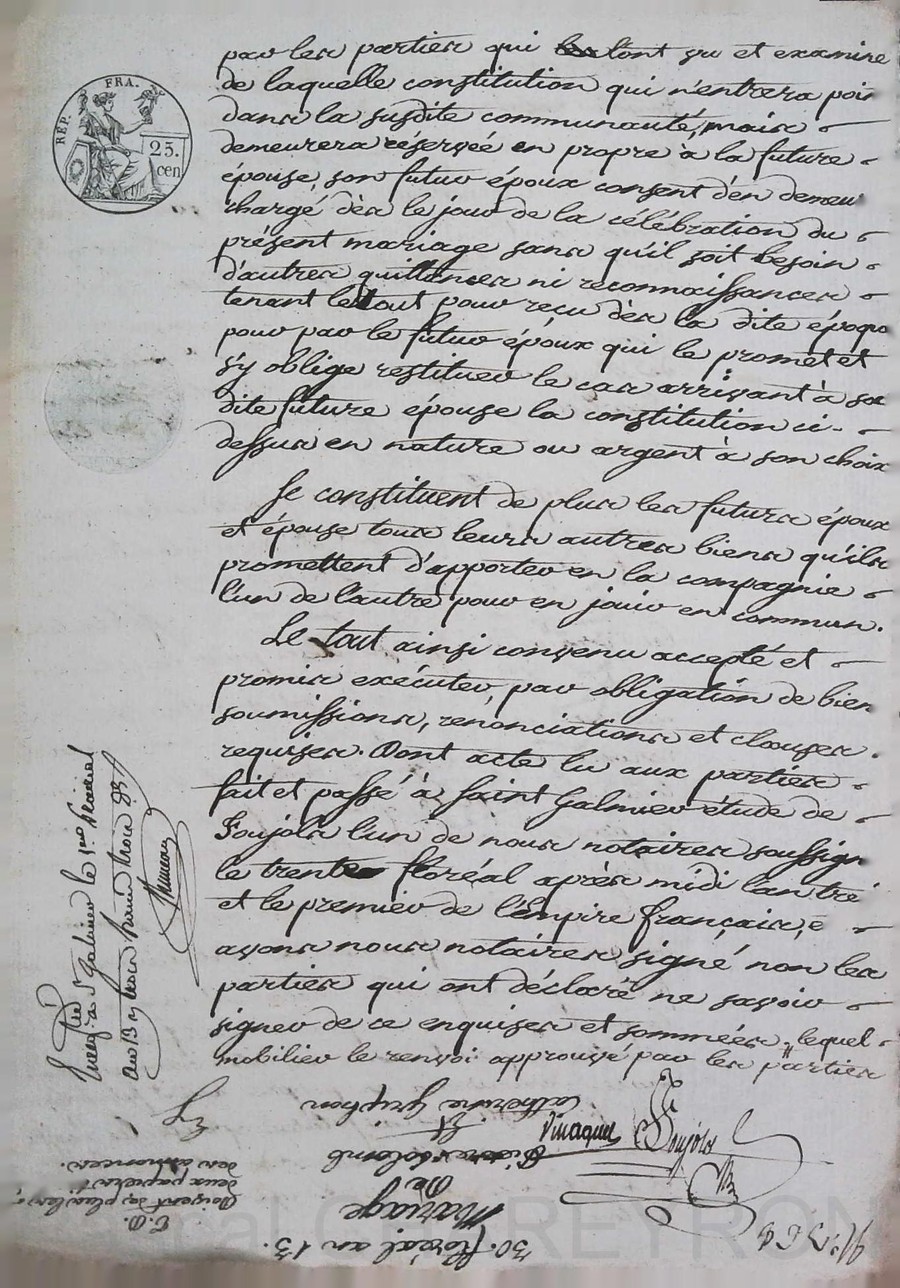 par les parties qui l'ont vu et examiné
de laquelle constitution qui n'entrera poin
dans la susdite communauté, mais
demeurera réservée en propre à la future
épouse, son futur époux consent d'en demeu
chargé dès le jour de la célébration du
présent mariage sans qu'il soit besoin
d'autres quittances ni reconnaissances
tenant le tout pour reçu dès la dite époque
pour par le futur époux qui le promet et
s'y oblige restituer le cas arrivant à sa
dite future épouse la constitution ci-
dessus en nature ou argent à son choix
Se constituent de plus les futurs époux
et épouse tous leurs autres biens qu'ils
promettent d'apporter en la compagnie
l'un de l'autre pour en jouir en commun.
Le tout ainsi convenu accepté et
promis exécuter, par obligation de bien
soumissions, renonciations et clauses
requises. Dont acte lu aux parties
fait et passé à Saint Galmier étude de
Soujols l'un de nous notaires soussign
le trente floréal après midi l'an trei
et le premier de l'Empire français, e
avons nous notaires signé non les
parties qui ont déclaré ne savoir
signer de ce enquises et sommées, lequel
mobilier le renvoi approuvé par les parties
RÉP. FRA.
25.
cen
Enregistré à St Galmier le 1er Prairial
an 13
Vinaquer
Soujols
30. floréal an 13.
Mariage
De
Colomb
Et
Catherine Gryphon
deux papiers
des annonces.
REYRON